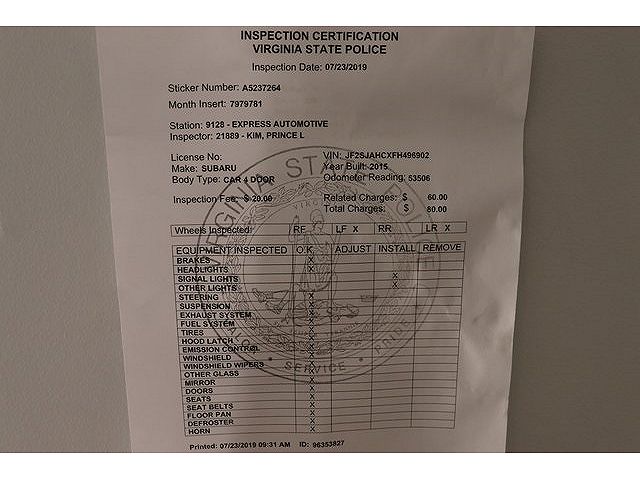 INSPECTION CERTIFICATION
VIRGINIA STATE POLICE
Inspection Date: 07/23/2019
Sticker Number: A5237264
Month Insert: 7979781
Station: 9128 - EXPRESS AUTOMOTIVE
Inspector: 21889 - KIM, PRINCE L
License No: VIN: JF2SJAHCXFH496902
Make: SUBARU Year Built: 2015
Body Type: CAR 4 DOOR Odometer Reading: 53506
Inspection Fee: $ 20.00 Related Charges: $ 60.00
Total Charges: $ 80.00
Wheels Inspected: RF LF X RR LR X
EQUIPMENT INSPECTED O.K. ADJUST INSTALL REMOVE
BRAKES X
HEADLIGHTS X
SIGNAL LIGHTS X
OTHER LIGHTS X
STEERING X
SUSPENSION X
EXHAUST SYSTEM X
FUEL SYSTEM X
TIRES X
HOOD LATCH X
EMISSION CONTROL X
WINDSHIELD X
WINDSHIELD WIPERS X
OTHER GLASS X
MIRROR X
DOORS X
SEATS X
SEAT BELTS X
FLOOR PAN X
DEFROSTER X
HORN X
Printed: 07/23/2019 09:31 AM ID: 96353827
VIRGINIA STATE POLICE
SERVICE • PRIDE